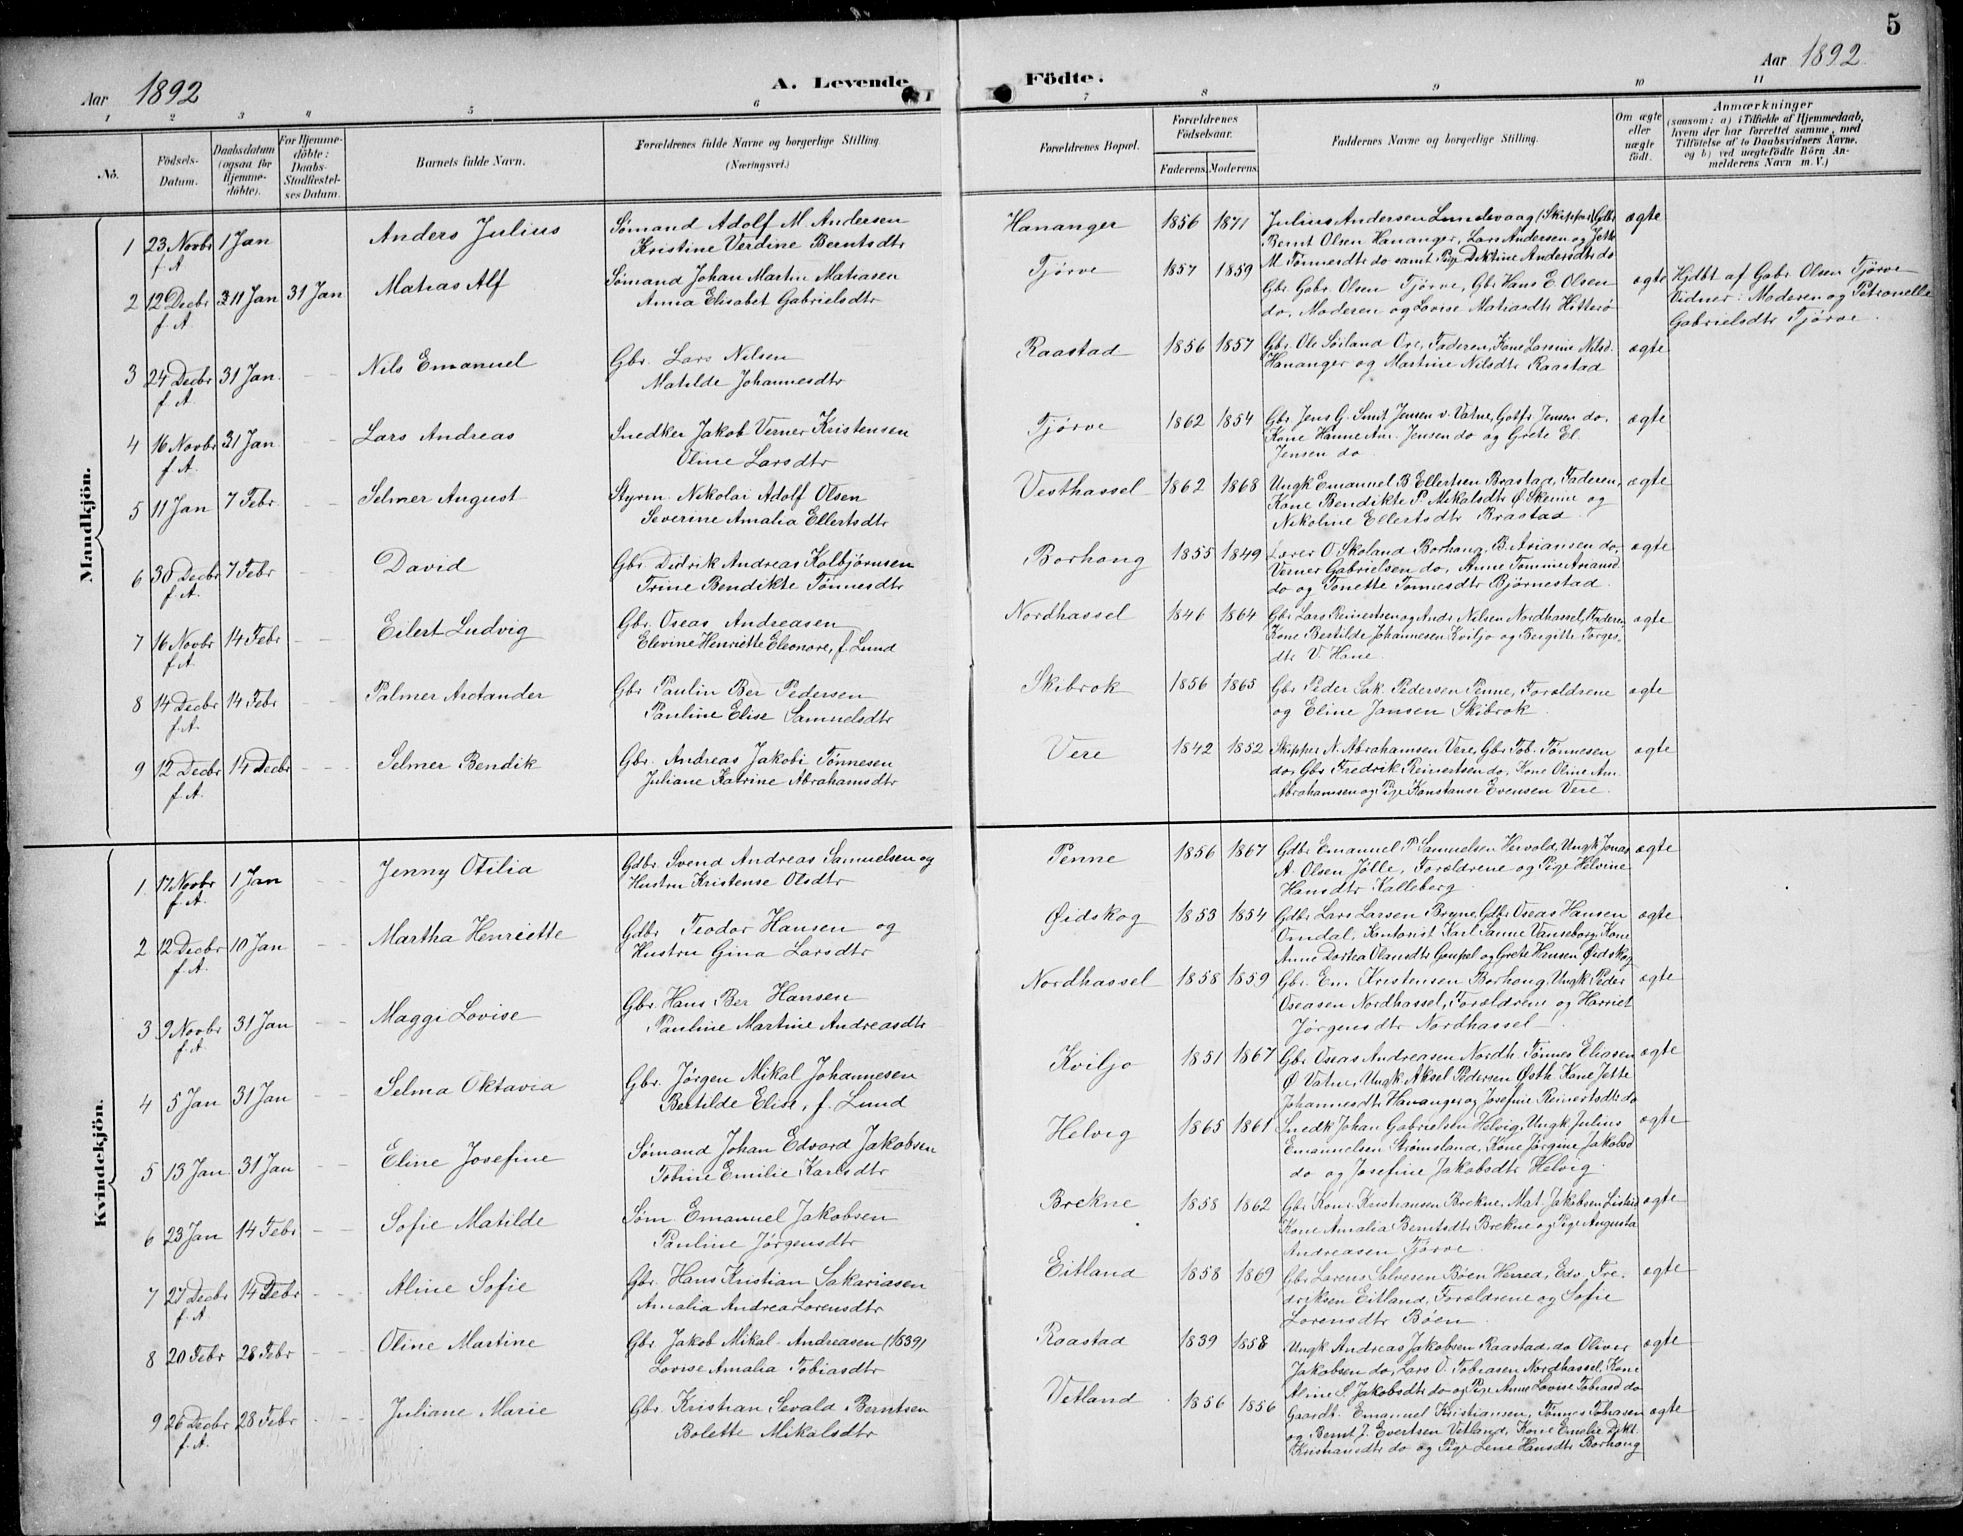 5
Aar 1892
A. Levende
Födte.
Aar 1892
1 2 3 4 5 6 7 8 9 10 11
No.
Födsels-Datum.
Daabsdatum (ogsaa for Hjemme-döbte).
For Hjemme-döbte: Daabs-Stadfæstel-ses Datum.
Barnets fulde Navn.
Forældrenes fulde Navne og borgerlige Stilling
(Næringsvei.)
Forældrenes Bopæl.
Forældrenes Födselsaar.
Faderens. Moderens.
Faddernes Navne og borgerlige Stilling.
Om ægte eller uægte födt.
Anmærkninger
(saasom: a) i Tilfælde af Hjemmedaab, hvem der har forrettet samme, med Tilföielse af to Daabsvidners Navne, og b) ved uægtefödte Börn Anmelderens Navn m. V.)
Mandkjön.
1 23 Novbr f. A. 1 Jan Anders Julius Sømand Adolf M. Andersen
Kristine Verdine Berntsdtr
Hananger 1856 1871 Julius Andersen Lundevaag (Skipper) Gbr
Bernt Olsen Hananger, Lars Andersen og Jette
M. Tønnesdtr do samt Pige Andersdtr do ægte
2 12 Decbr f. A. 11 Jan 31 Jan Matias Alf Sømand Johan Martin Matiasen
Anna Elisabet Gabrielsdtr
Tjørve 1857 1859 Gbr Gabr. Olsen Tjörve, Gbr Hans E. Olsen
do, Moderen og Lovise Matiasdtr Hitterø ægte
Hjdbt af Gabr Olsen Tjörve
Vidner: Moderen og Petronelle
Gabrielsdtr Tjörve.
3 24 Decbr f. A. 31 Jan Nils Emanuel Gbr. Lars Nilsen
Matilde Johannesdtr
Raastad 1856 1857 Gbr. Ole Søiland Ore, Faderen, Kone Larsine Nilsd.
Hananger og Martine Nilsdtr Raastad ægte
4 16 Novbr f. A. 31 Jan Lars Andreas Snedker Jakob Verner Kristensen
Oline Larsdtr
Tjørve 1862 1854 Gbr Jens G. Smit Jensen v. Vatne, Gotfr. Jensen do.
Kone Hanne Am. Jensen do og Grete El.
Jensen do ægte
5 11 Jan 7 Febr Selmer August Styrm. Nikolai Adolf Olsen
Severine Amalia Ellertsdtr
Vesthassel 1862 1868 Ungk Emanuel B Ellertsen Brastad, Faderen,
Kone Bendikte P. Mikalsdtr Ø. Skeime og
Nikoline Ellertsdtr Brastad ægte
6 30 Decbr f. A. 7 Febr David Gbr. Didrik Andreas Kolbjørnsen
Trine Bendikte Tønnesdtr
Borhong 1855 1849 Lærer O. Skoland Borhong, B. Ariansen do,
Verner Gabrielsen do, Anne Tomine Ariansd
do og Tonette Tønnesdtr Bjørnestad ægte
7 16 Novbr f. A. 14 Febr Eilert Ludvig Gbr. Oseas Andreasen
Elevine Henriette Eleonore, f. Lund
Nordhassel 1846 1864 Gbr Lars Reinertsen og Andr. Nilsen Nordhassel, Faderen
Kone Bertilde Johannesen Kviljo og Bergitte Torges
dtr V. Hone. ægte
8 14 Decbr f. A. 14 Febr Palmer Arctander Gbr Paulin Ber Pedersen
Pauline Elise Samuelsdtr
Skibrok 1856 1865 Gbr Peder Sak. Pedersen Penne, Forældrene
og Eline Jansen Skibrok ægte
9 12 Decbr f. A. 14 Decbr Selmer Bendik Gbr. Andreas Jakobi Tønnesen
Juliane Katrine Abrahamsdtr
Vere 1842 1852 Skipper N. Abrahamsen Vere, Gbr Tob. Tønnesen
do, Gbr Fredrik Reinertsen do, Kone Oline Am.
Abrahamsen og Pige Konstanse Evensen Vere. ægte
Kvindekjön.
1 17 Novbr f. A. 1 Jan Jenny Otilia Gdbr. Svend Andreas Samuelsen og
Hustru Kristense Olsdtr
Penne 1856 1867 Gdbr Emanuel P Samuelsen Hervold, Ungk Jonas
A. Olsen Jölle, Forældrene og Pige Helvine
Hansdtr Kalleberg ægte
2 12 Decbr f. A. 10 Jan Martha Henriette Gdbr Teodor Hansen og
Hustru Gina Larsdtr
Øidskog 1853 1854 Gdbr Lars Larsen Bryne, Gdbr Oseas Hansen
Omdal, Kontorist Karl Sanne Vanseborg, Kone
Anne Dortea Olausdtr og Grete Hansen Øidskog ægte
3 9 Novbr f. A. 31 Jan Maggi Lovise Gbr. Hans Ber Hansen
Pauline Martine Andreasdtr
Nordhassel 1858 1859 Gbr. Em. Kristensen Borhong, Ungk Peder
Oseasen Nordhassel, Forældrene og Harriet
Jørgensdtr Nordhassel ægte
4 5 Jan 31 Jan Selma Oktavia Gbr. Jørgen Mikal Johannesen
Bertilde Elise, f. Lund
Kviljo 1851 1867 Gbr Oseas Andreasen Nordh. Tønnes Eliasen
Ø Vatne, Ungk Aksel Pedersen Østh. Kone Jette
Johannesdtr Hananger og Josefine Reinertsdtr do ægte
5 13 Jan 31 Jan Eline Josefine Sømand Johan Edvard Jakobsen
Tobine Emilie Karlsdtr
Helvig 1865 1861 Snedk Johan Gabrielsen Helvig, Ungk Julius
Emanuelsen Strømsland, Kone Jørgine Jakobsd
do og Josefine Jakobsdtr Helvig. ægte
6 23 Jan 14 Febr Sofie Matilde Søm Emanuel Jakobsen
Pauline Jørgensdtr
Brekne 1858 1862 Gbr Kone Kristiansen Brekne, Mat. Jakobsen
Kone Amalia Berntsdtr Brekne og Pige Augusta
Andreasen Tjørve ægte
7 27 Decbr f. A. 14 Febr Aline Sofie Gbr. Hans Kristian Sakariasen
Amalia Andrea Lorensdtr
Eitland 1858 1869 Gbr Lorens Salvesen Bøen Herred, Edv. Fre-
driksen Eitland, Forældrene og Sofie
Lorensdtr Bøen ægte
8 20 Febr 28 Febr Oline Martine Gbr Jakob Mikal Andreasen (1839)
Lovise Amalia Tobiasdtr
Raastad 1839 1858 Ungk Andreas Jakobsen Raastad, do Oliver
Jakobsen do, Lars O. Tobiasen Nordhassel, Kone
Aline S. Jakobsdtr do og Pige Anne Lovise Tobiasd do ægte
9 26 Decbr f. A. 28 Febr Juliane Marie Gbr. Kristian Sevald Berntsen
Bolette Mikalsdtr
Vetland 1856 1856 Gaardb. Emanuel Kristiansen, Tønnes Tobiasen
og Bernt J. Evertsen Vetland, Kone Emelie
Kristiansdtr do og Pige Lene Hansdtr Borhong ægte